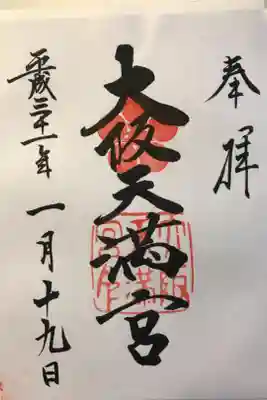 奉拝
大阪天満宮
平成三十一年一月十九日